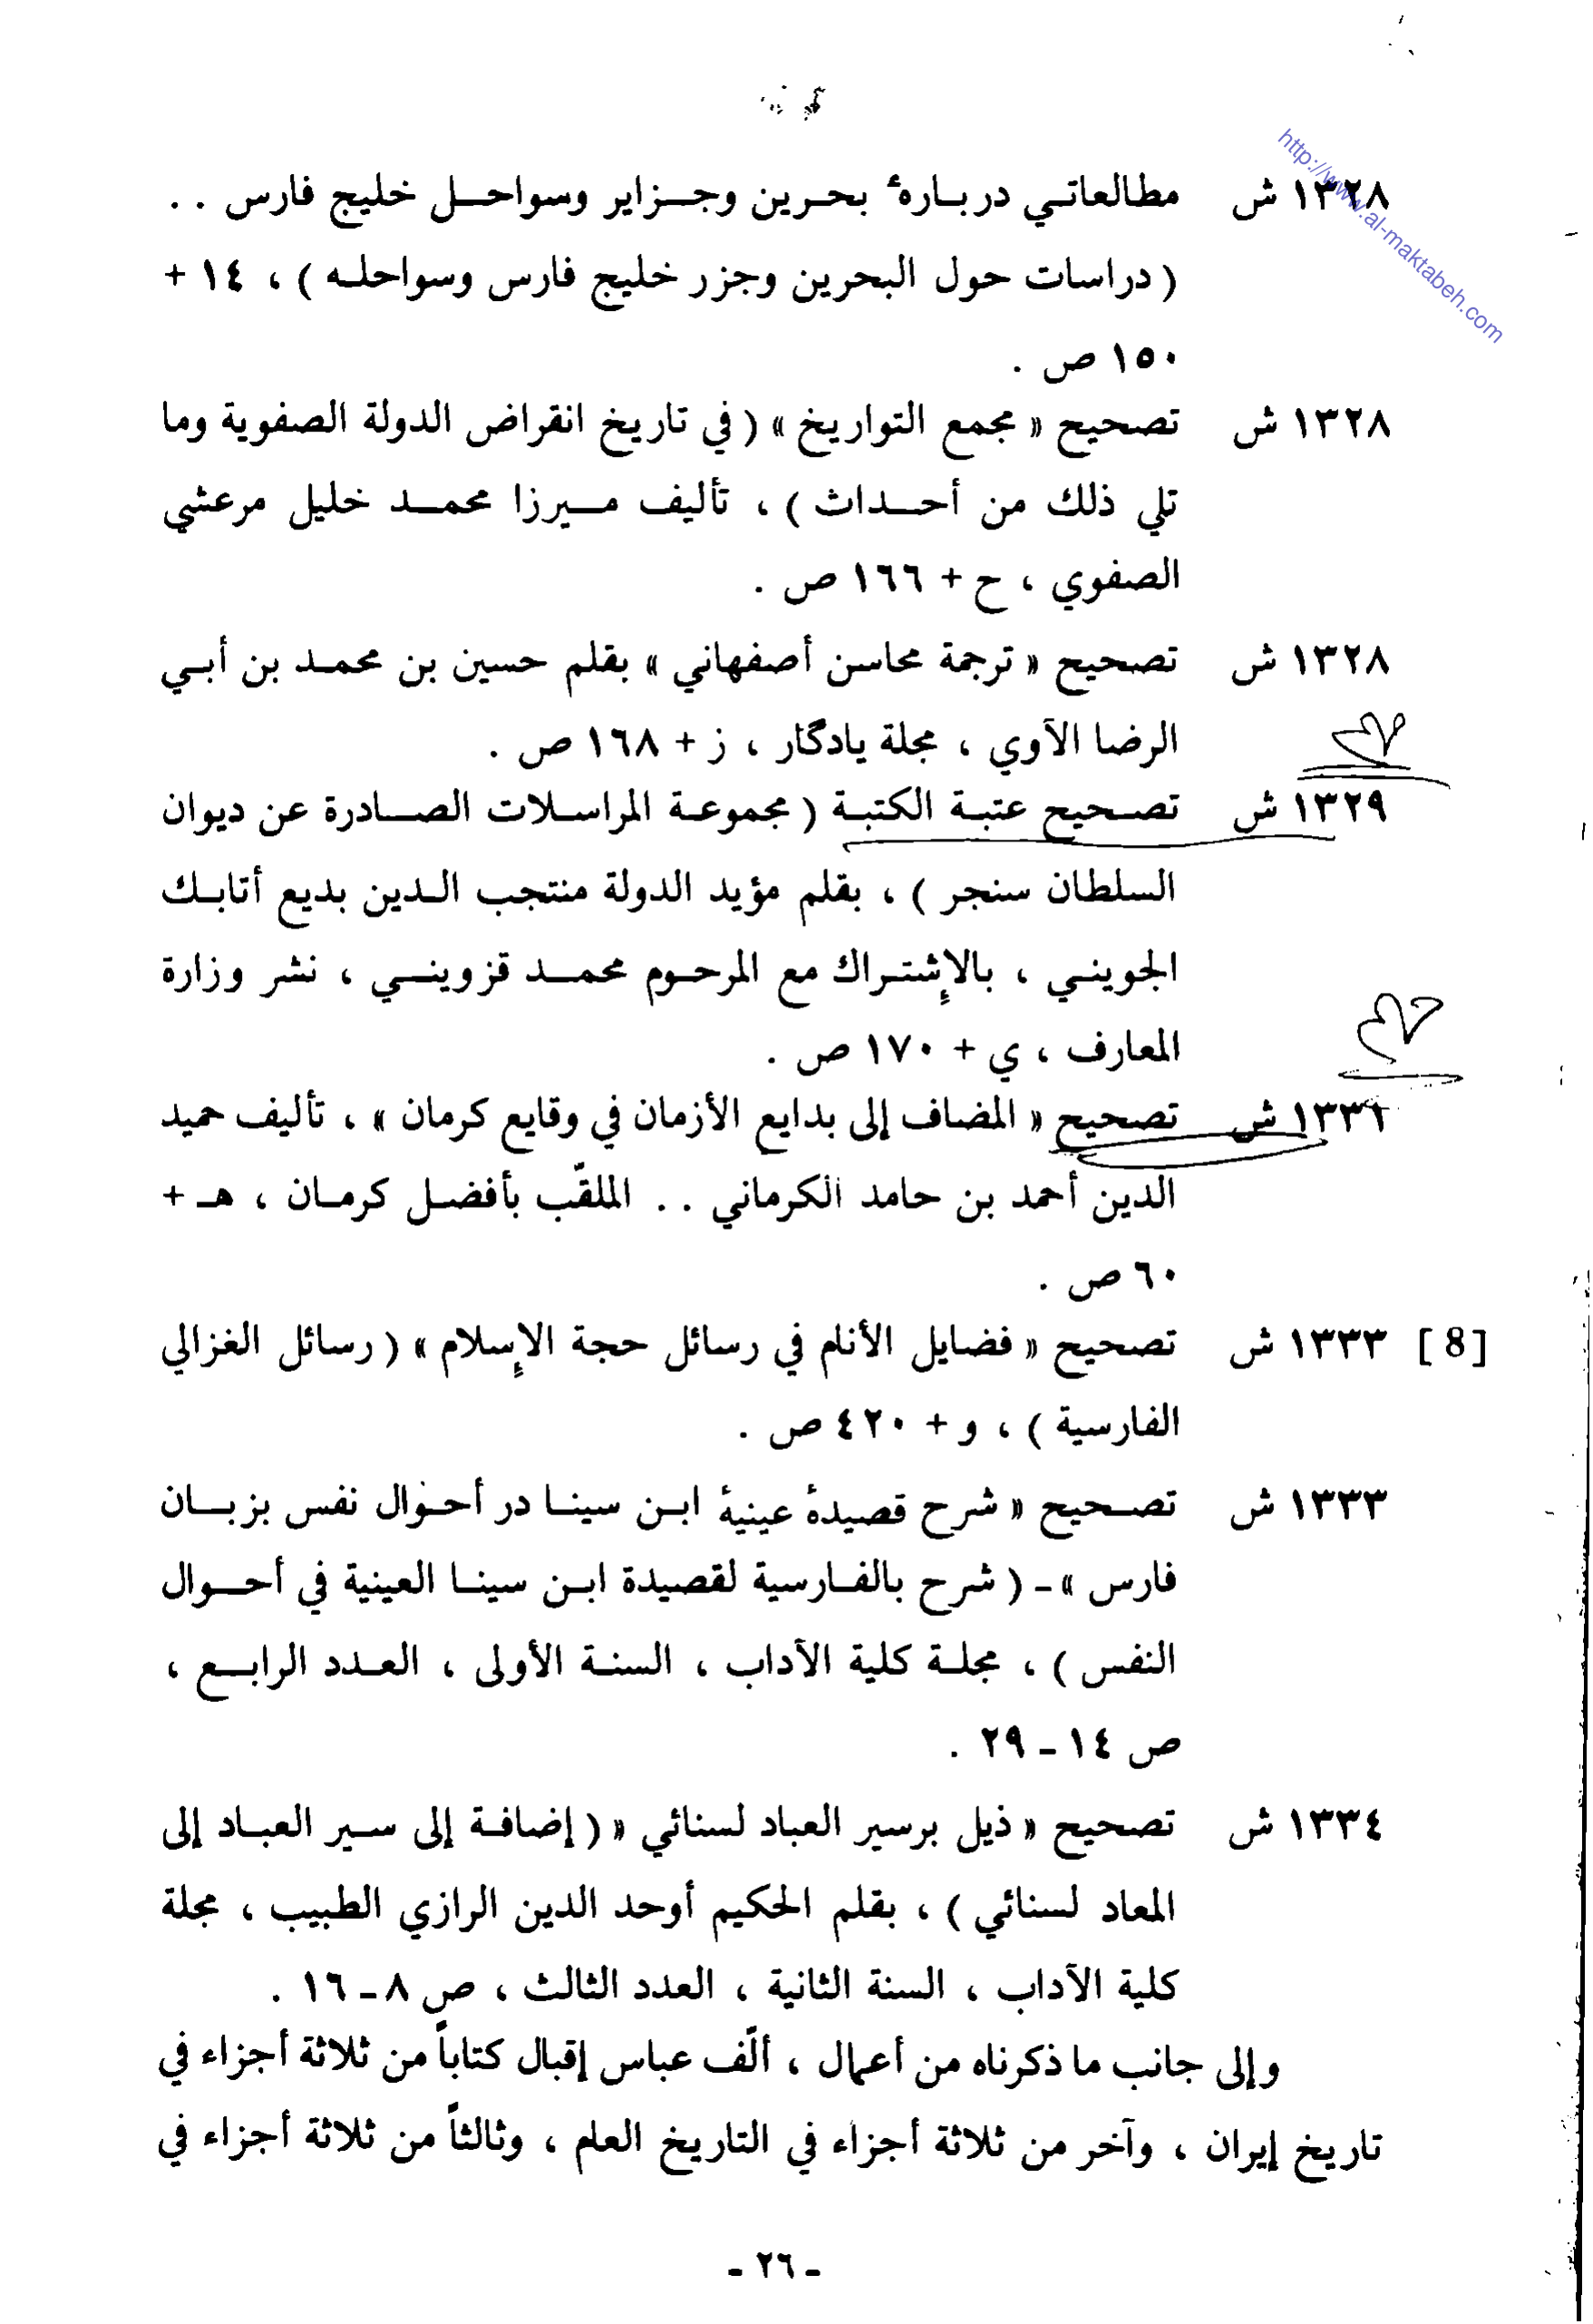 http://www.al-maktabeh.com
١٣٢٨ ش مطالعاتي دربارهٔ بحرين وجزاير وسواحل خليج فارس . .
( دراسات حول البحرين وجزر خليج فارس وسواحله ) ، ١٤ +
١٥٠ ص .
١٣٢٨ ش تصحيح « مجمع التواريخ » ( في تاريخ انقراض الدولة الصفوية وما
تلي ذلك من أحداث ) ، تأليف ميرزا محمد خليل مرعشي
الصفوي ، ح + ١٦٦ ص .
١٣٢٨ ش تصحيح « ترجمة محاسن أصفهاني » بقلم حسين بن محمد بن أبي
الرضا الآوي ، مجلة يادگار ، ز + ١٦٨ ص .
١٣٢٩ ش تصحيح عتبة الكتبة ( مجموعة المراسلات الصادرة عن ديوان
السلطان سنجر ) ، بقلم مؤيد الدولة منتجب الدين بديع أتابك
الجويني ، بالإشتراك مع المرحوم محمد قزويني ، نشر وزارة
المعارف ، ي + ١٧٠ ص .
١٣٣١ ش تصحيح « المضاف إلى بدايع الأزمان في وقايع كرمان » ، تأليف حميد
الدين أحمد بن حامد الكرماني . . الملقّب بأفضل كرمان ، هـ +
٦٠ ص .
[ 8 ] ١٣٣٣ ش تصحيح « فضايل الأنام في رسائل حجة الإسلام » ( رسائل الغزالي
الفارسية ) ، و + ٤٢٠ ص .
١٣٣٣ ش تصحيح « شرح قصيدهٔ عينيهٔ ابن سينا در أحوال نفس بزبان
فارس » - ( شرح بالفارسية لقصيدة ابن سينا العينية في أحوال
النفس ) ، مجلة كلية الآداب ، السنة الأولى ، العدد الرابع ،
ص ١٤ - ٢٩ .
١٣٣٤ ش تصحيح « ذيل برسير العباد لسنائي « ( إضافة إلى سير العباد إلى
المعاد لسنائي ) ، بقلم الحكيم أوحد الدين الرازي الطبيب ، مجلة
كلية الآداب ، السنة الثانية ، العدد الثالث ، ص ٨ - ١٦ .
وإلى جانب ما ذكرناه من أعمال ، ألّف عباس إقبال كتاباً من ثلاثة أجزاء في
تاريخ إيران ، وآخر من ثلاثة أجزاء في التاريخ العام ، وثالثاً من ثلاثة أجزاء في
- ٢٦ -